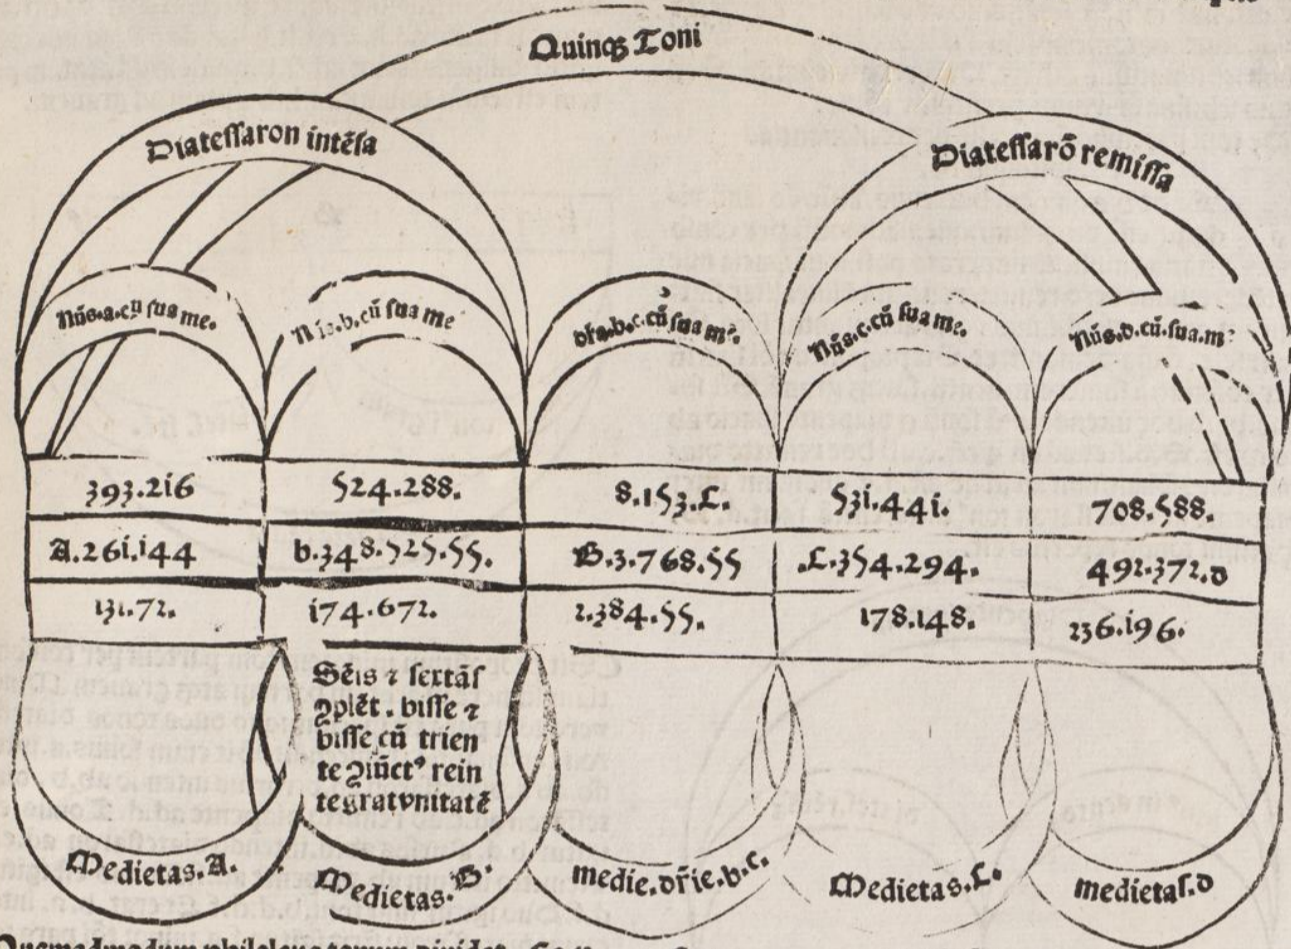 Quinqꝫ Toni
Diatessaron intẽsa
Diatessarõ remissa
Nũs.a.cũ sua me.
b.cũ sua me
dr̃a.b.c.cũ sua me.
Nũs.c.cũ sua me.
Nũs.d.cũ.sua.m
393.216
524.288.
8.153.C.
531.441.
708.588.
A.261.144
b.348.525.55.
B.3.768.55
.C.354.294.
492.372.d
131.72.
174.672.
2.384.55.
178.148.
236.196.
Sẽis ⁊ sextãs
ꝯplẽt. bisse ⁊
bisse cũ trien
te ꝯiũctꝰ rein
tegrat vnitatẽ
Medietas.A.
Medietas. B.
medie.dr̃ie.b.c.
Medietas.C.
medietas.d